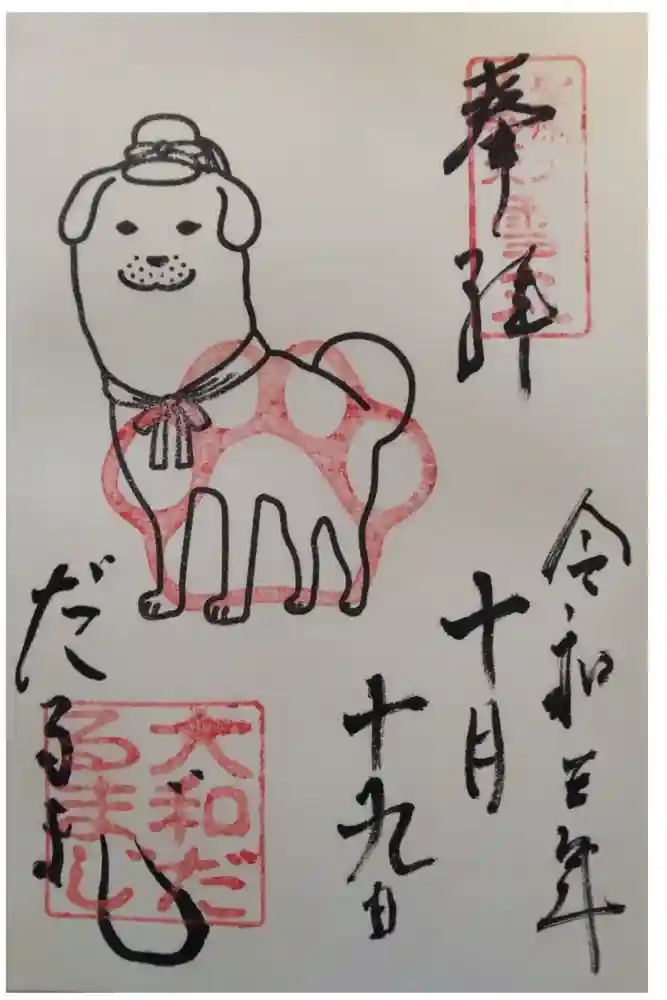 奉拝
令和三年
十月
十九日
だるまじ
大和だ
るまじ